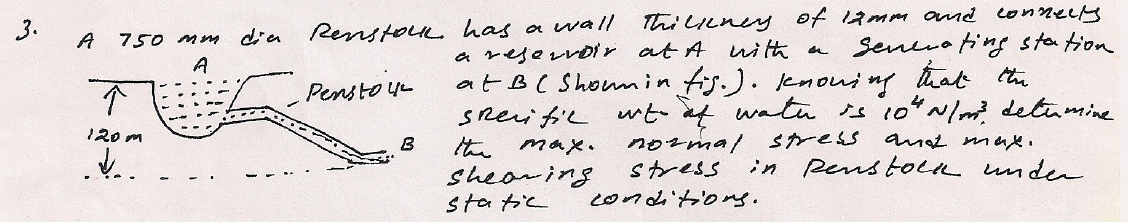 3. A 750 mm dia Penstock has a wall thickness of 12mm and connects
a reservoir at A with a Generating station
at B (Shown in fig.). Knowing that the
specific wt. of water is 10⁴ N/m³, determine
the max. normal stress and max.
shearing stress in Penstock under
static conditions.
A
Penstock
120m
B